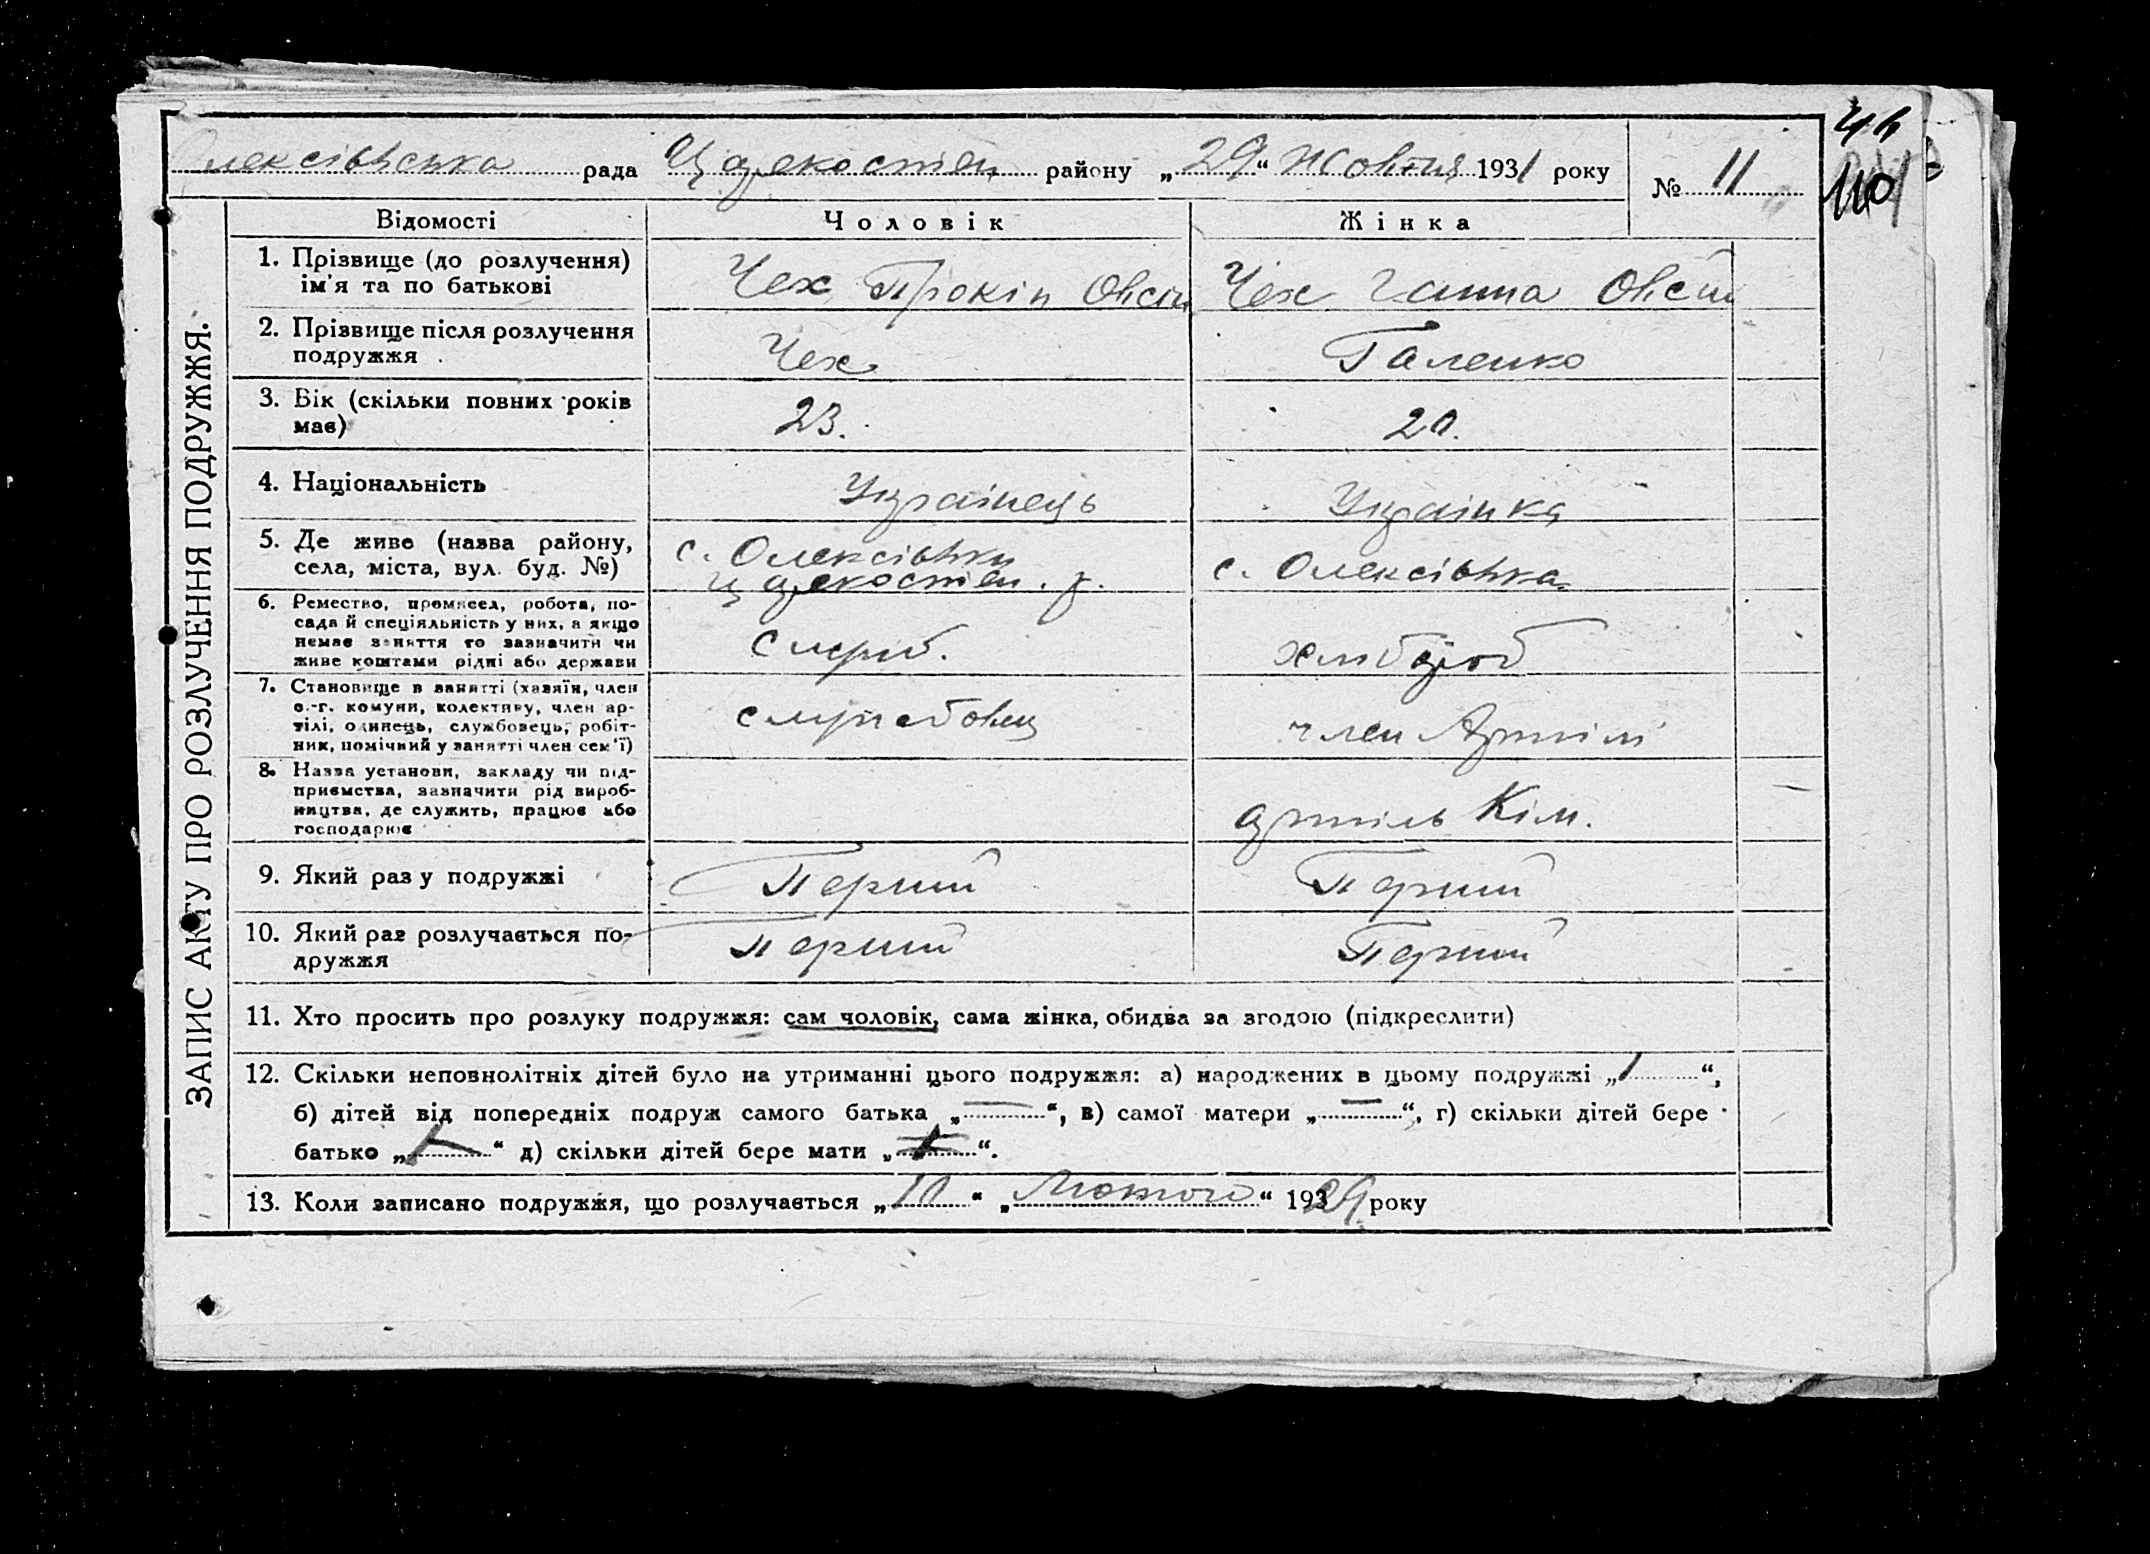 44
110
Олексівська рада Царекостян району „29“ Жовтня 1931 року № 11
ЗАПИС АКТУ ПРО РОЗЛУЧЕННЯ ПОДРУЖЖЯ.
Відомості Чоловік Жінка
1. Прізвище (до розлучення)
ім'я та по батькові
Чех Прокіп Овсій Чех Ганна Овсій
2. Прізвище після розлучення
подружжя
Чех Галенко
3. Вік (скільки повних років
має)
23. 20.
4. Національність
Українець Українка
5. Де живе (назва району,
села, міста, вул. буд. №)
с. Олексівки
Царекостян. р.
с. Олексівка
6. Ремество, промисел, робота, по-
сада й спеціяльність у них, а якщо
немає заняття то зазначити чи
живе коштами рідні або держави
Служб. хлібороб
7. Становище в занятті (хазяїн, член
с.-г. комуни, колективу, член ар-
тілі, одинець, службовець, робіт-
ник, помічний у занятті член сем'ї)
службовець член Артілі
8. Назва установи, закладу чи під-
приємства, зазначити рід вироб-
ництва, де служить, працює або
господарює
артіль Кім.
9. Який раз у подружжі
Перший Перший
10. Який раз розлучається по-
дружжя
Перший Перший
11. Хто просить про розлуку подружжя: сам чоловік, сама жінка, обидва за згодою (підкреслити)
12. Скільки неповнолітніх дітей було на утриманні цього подружжя: а) народжених в цьому подружжі „1“,
б) дітей від попередніх подруж самого батька „—“, в) самої матери „—“, г) скільки дітей бере
батько „—“ д) скільки дітей бере мати „“.
13. Коли записано подружжя, що розлучається „10“ „Лютого“ 1929 року